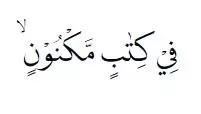 فِيْ كِتٰبٍ مَّكْنُوْنٍۙ